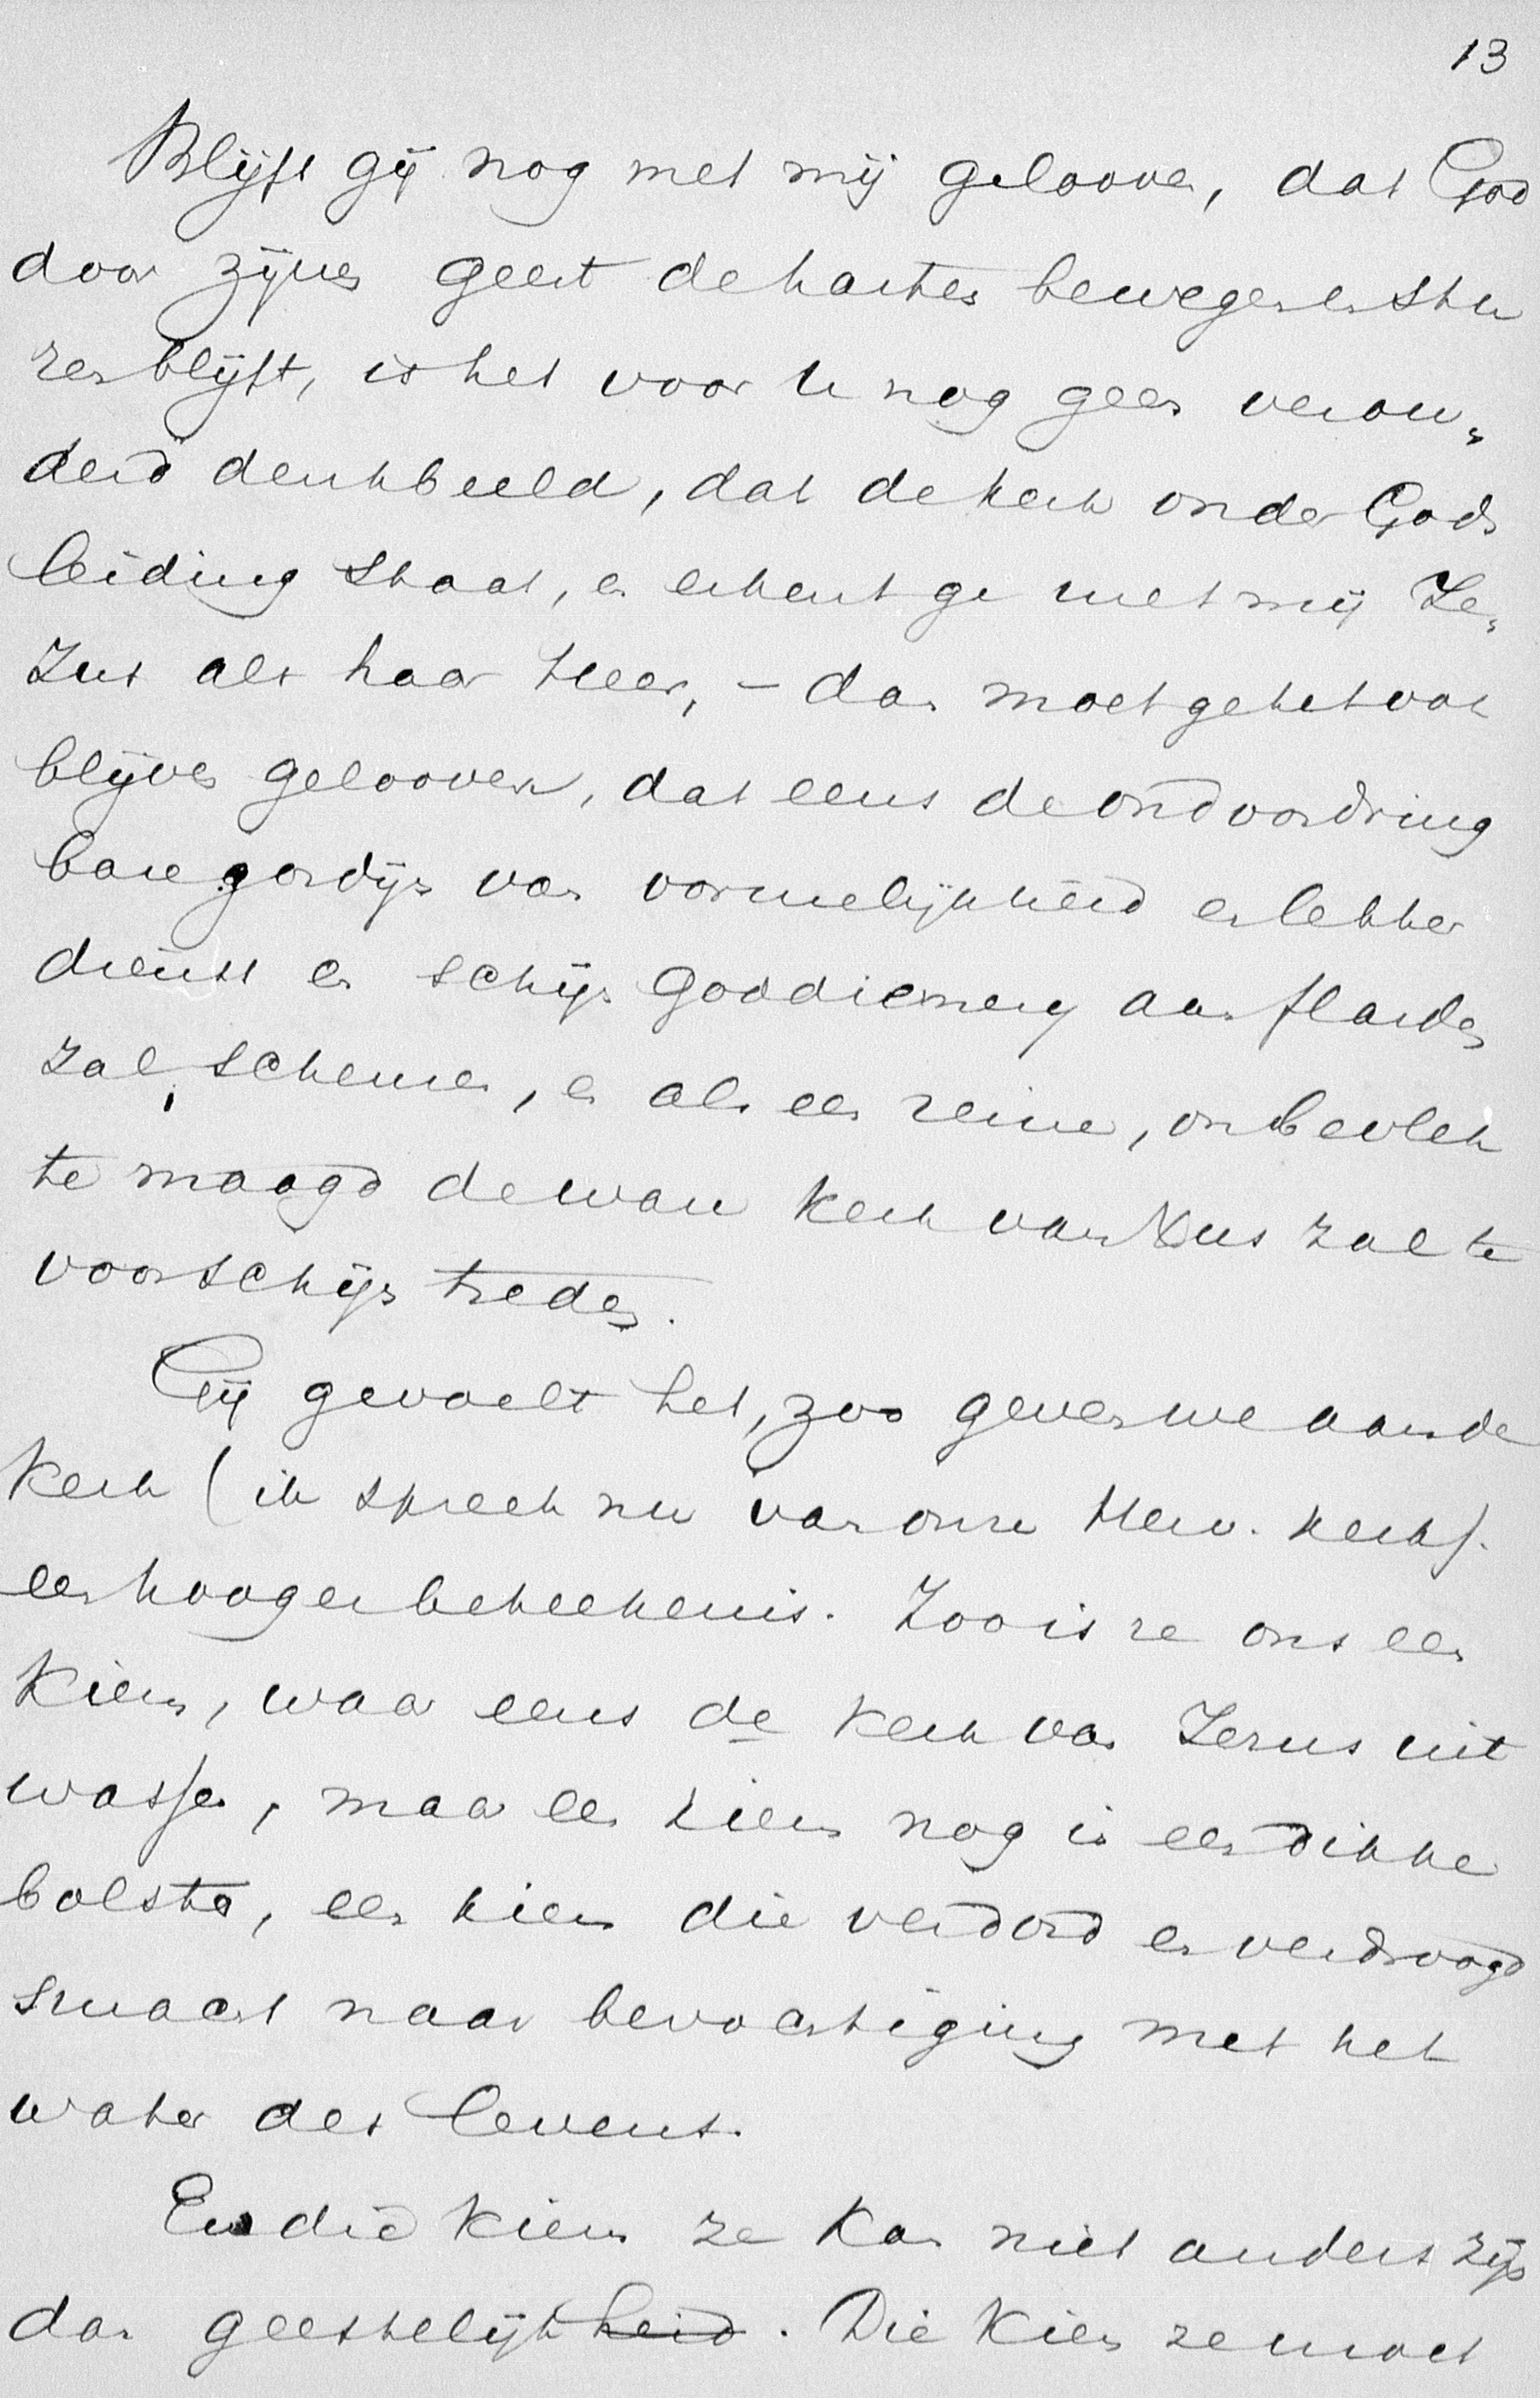 13
Blijft gij nog met mij gelooven, dat God
door zijnen geest de harten bewegen en stu
ren blijft, is het voor U nog geen verou„
derd denkbeeld, dat de kerk onder Gods
leiding staat, en erkent ge met mij Je„
zus als haar Heer, – dan moet ge het ook
blijven gelooven, dat eens de ondoordring
bare gordijn van vormelijkheid en letter
dienst en schijn Goddienerij aan flarden
zal scheuren, en als een reine, onbevlek
te maagd de ware Kerk van Xus zal te
voorschijn treden.
Gij gevoelt het, zoo geven we aan de
Kerk (ik spreek nu van onze Herv. kerk).
een hooger beteekenis. Zoo is ze ons een
Kiem, waar eens de Kerk van Jezus uit
wasse, maar een kiem nog in een dikke
bolster, een kiem die verdord en verdroogd
smacht naar bevochtiging met het
water des levens.
En die Kiem ze Kan niet anders zijn
dan geestelijk heid. Die Kiem ze moet